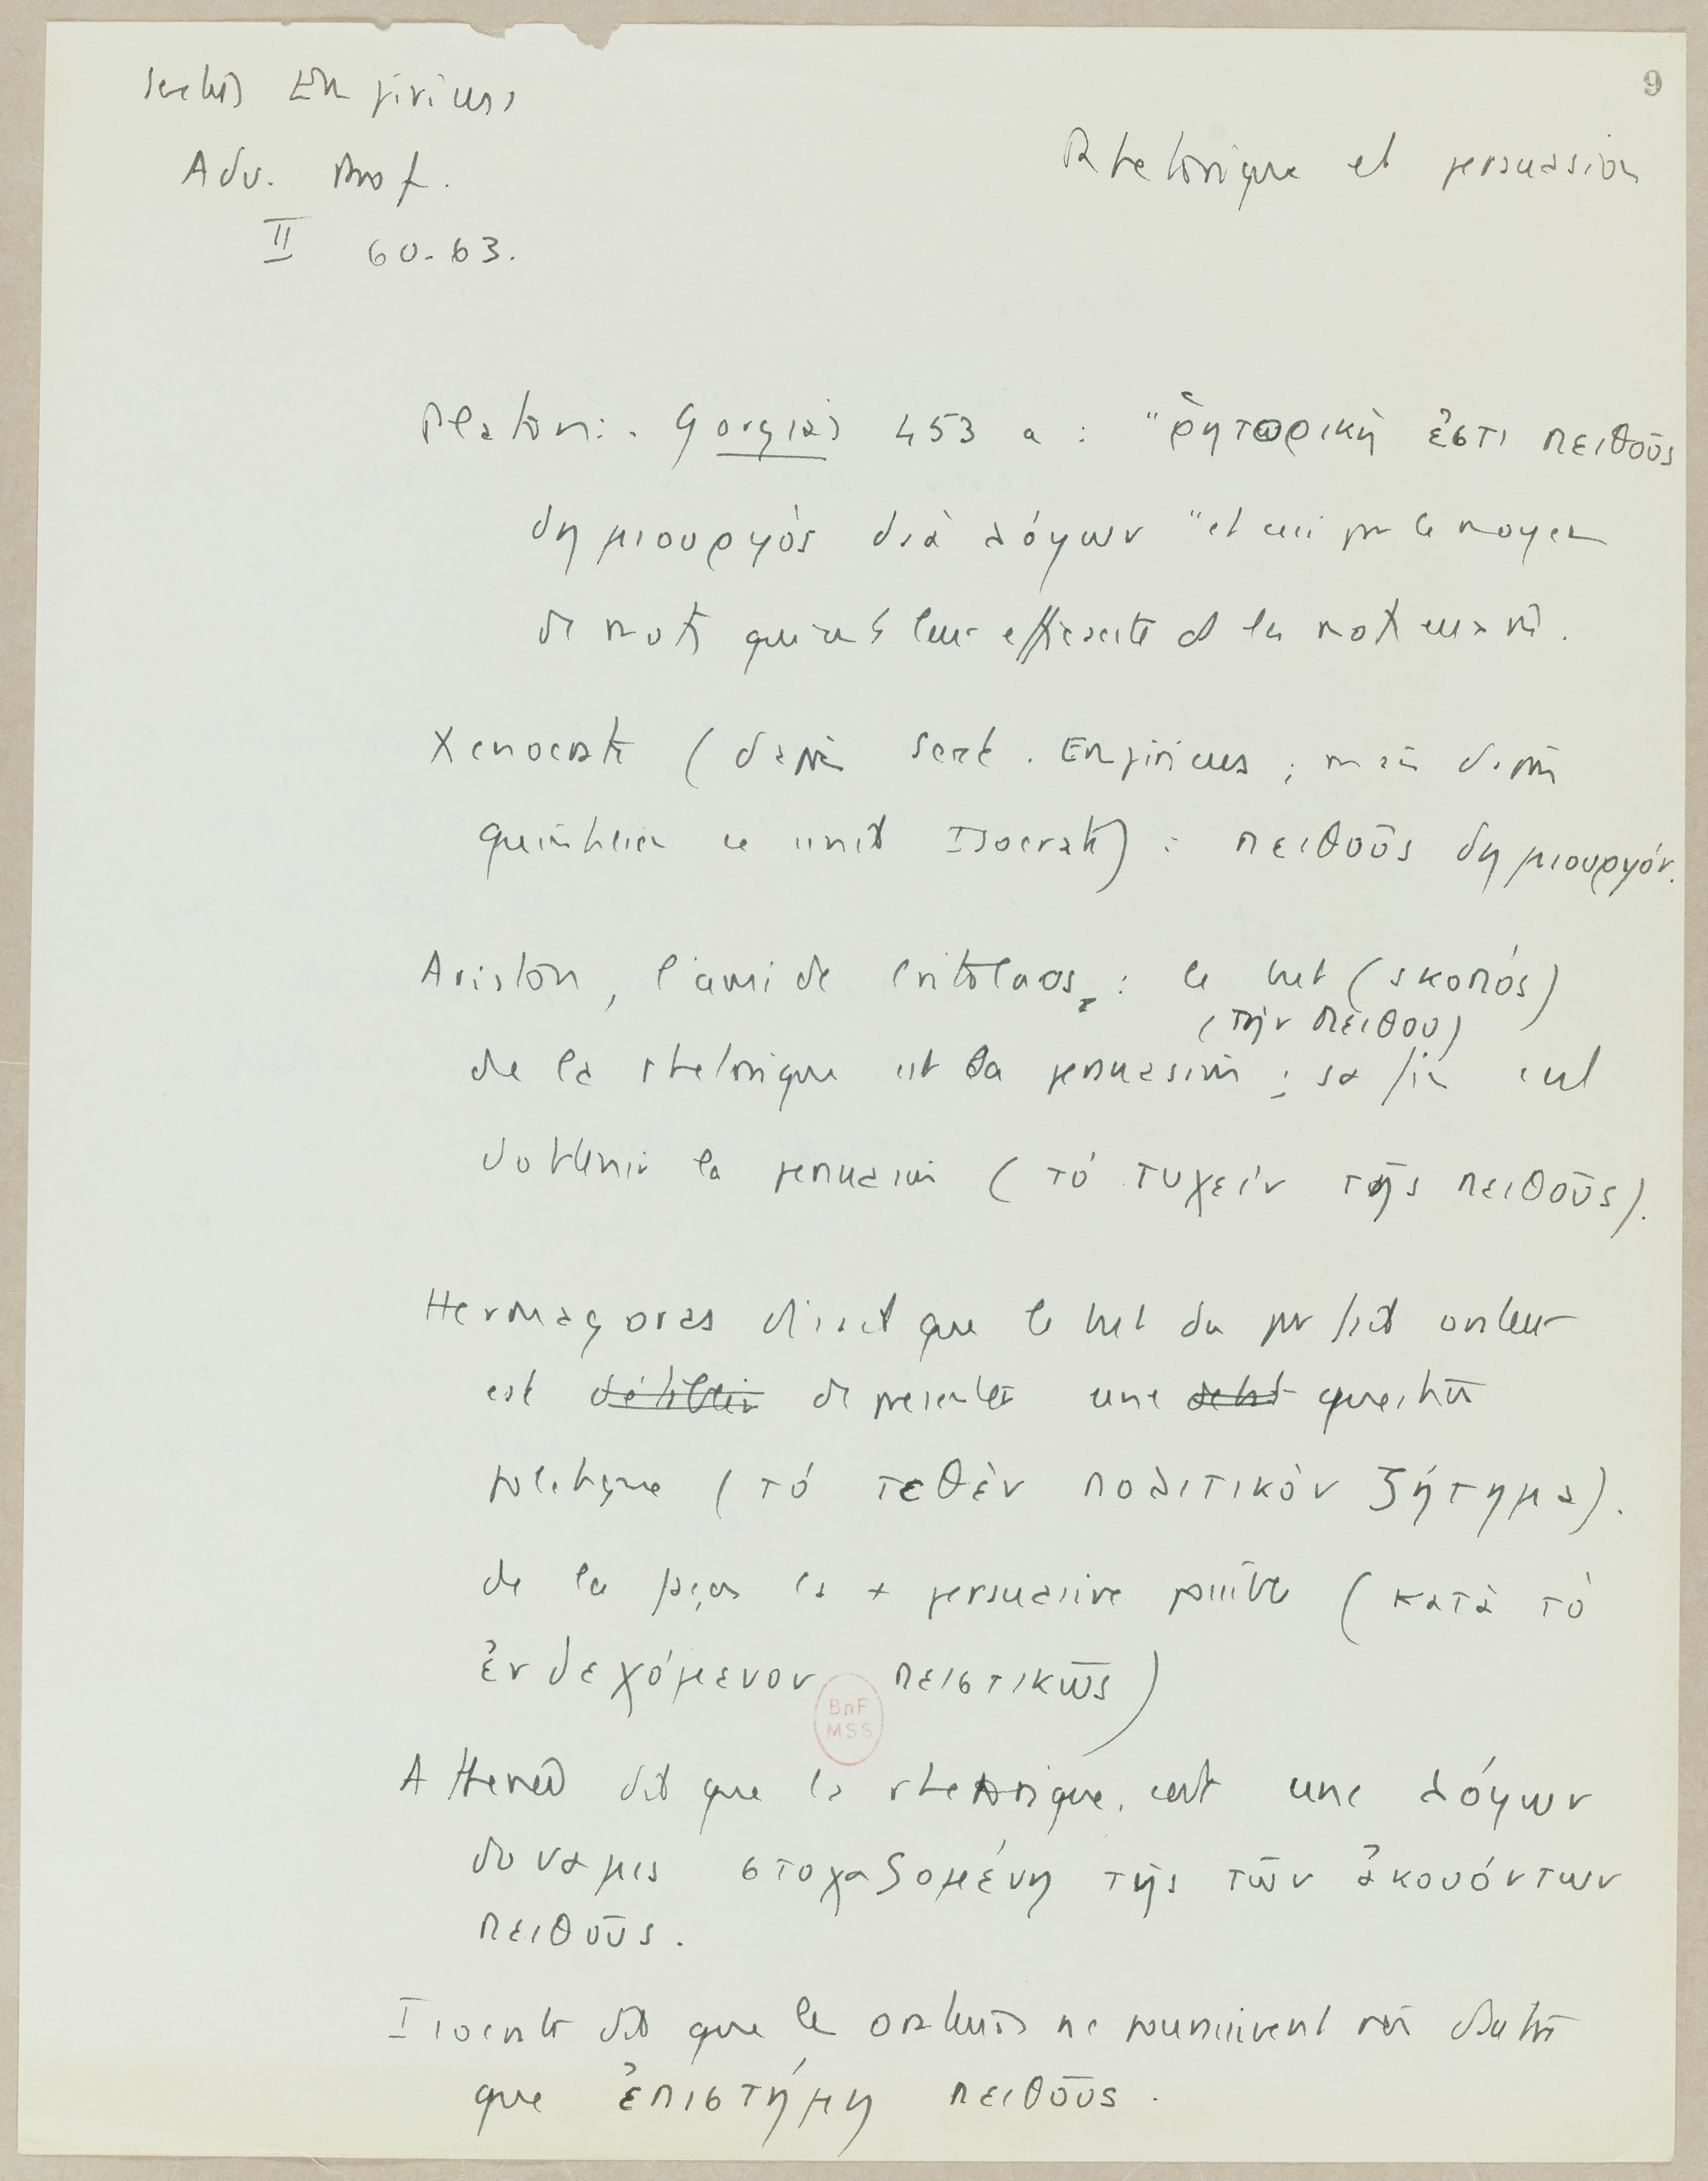 Sextus Empiricus
9
Adv. Prof.
Rhetorique et persuasion
II 60-63.
Platon : Gorgias 453 a : "ῥητορικὴ ἐστι πειθοῦς
δημιουργὸς διὰ λόγων" et ceci par le moyen
de mots qui ont leur efficacité
Xenocrate (d'après Sext. Empiricus ; mais d'après
Quintilien ce serait Isocrate) : πειθοῦς δημιουργόν.
Ariston, l'ami de Critolaos : le but (σκοπός)
(τὴν πειθου)
de la rhetorique est la persuasion ; sa fin c'est
d'obtenir la persuasion (τό τυχεῖν τῆς πειθοῦς).
Hermagoras disait que le but du parfait orateur
est de presenter une question
politique (τό τεθὲν πολιτικὸν ζήτημα).
de la façon la + persuasive possible (κατὰ τὸ
ἐνδεχόμενον πειστικῶς)
BnF
MSS
Athenée dit que la rhetorique est une λόγων
δυναμις στοχαζομένη τῆς τῶν ἀκουόντων
πειθοῦς.
Isocrate dit que les orateurs ne poursuivent rien d'autre
que ἐπιστήμη πειθοῦς.